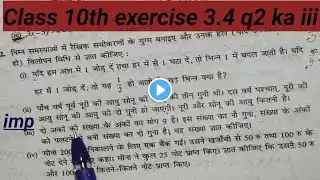 Class 10th exercise 3.4 q2 ka iii
निम्न समस्याओं में रैखिक समीकरणों के युग्म बनाइए और उनके हल (यदि
विलोपन विधि से ज्ञात कीजिए :
(i) यदि हम अंश में 1 जोड़ दें तथा हर में से 1 घटा दें, तो भिन्न 1 में बदल जाती है। यदि
हर में 1 जोड़ दें, तो यह 1/2 हो जाती है। वह भिन्न क्या है?
(ii) पाँच वर्ष पूर्व नूरी की आयु सोनू की आयु की तीन गुनी थी। दस वर्ष पश्चात्, नूरी की
आयु सोनू की आयु की दो गुनी हो जाएगी। नूरी और सोनू की आयु कितनी है।
imp
(iii) दो अंकों की संख्या के अंकों का योग 9 है। इस संख्या का नौ गुना, संख्या के अंकों
को पलटने से बनी संख्या का दो गुना है। वह संख्या ज्ञात कीजिए।
(iv) मीना 2000 निकालने के लिए एक बैंक गई। उसने खजाँची से 50 रु तथा 100 रु के
नोट देने के लिए कहा। मीना ने कुल 25 नोट प्राप्त किए। ज्ञात कीजिए कि उसने 50 रु
और 100 कितने-कितने नोट प्राप्त किए।